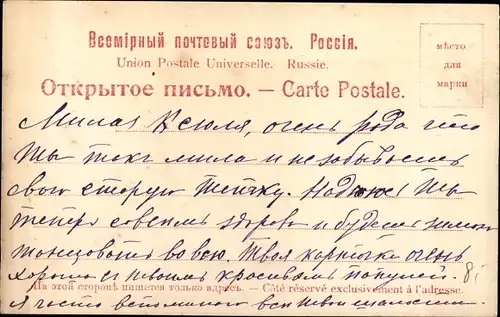 Всемірный почтевый союзъ. Россія.
Union Postale Universelle. Russie.
Открытое письмо. — Carte Postale.
мѣсто
для
марки
Милая Ксюля, очень рада что
ты такъ мила и не забываешь
свою старую тетку. Надѣюсь ты
теперь совсѣмъ здорова и будешь зимой
танцовать во всю. Твоя карточка очень
хороша съ твоимъ красивымъ попугей.
На этой сторонѣ пишется только адресъ. — Côté réservé exclusivement à l'adresse.
Я часто вспоминаю все твои шалости.